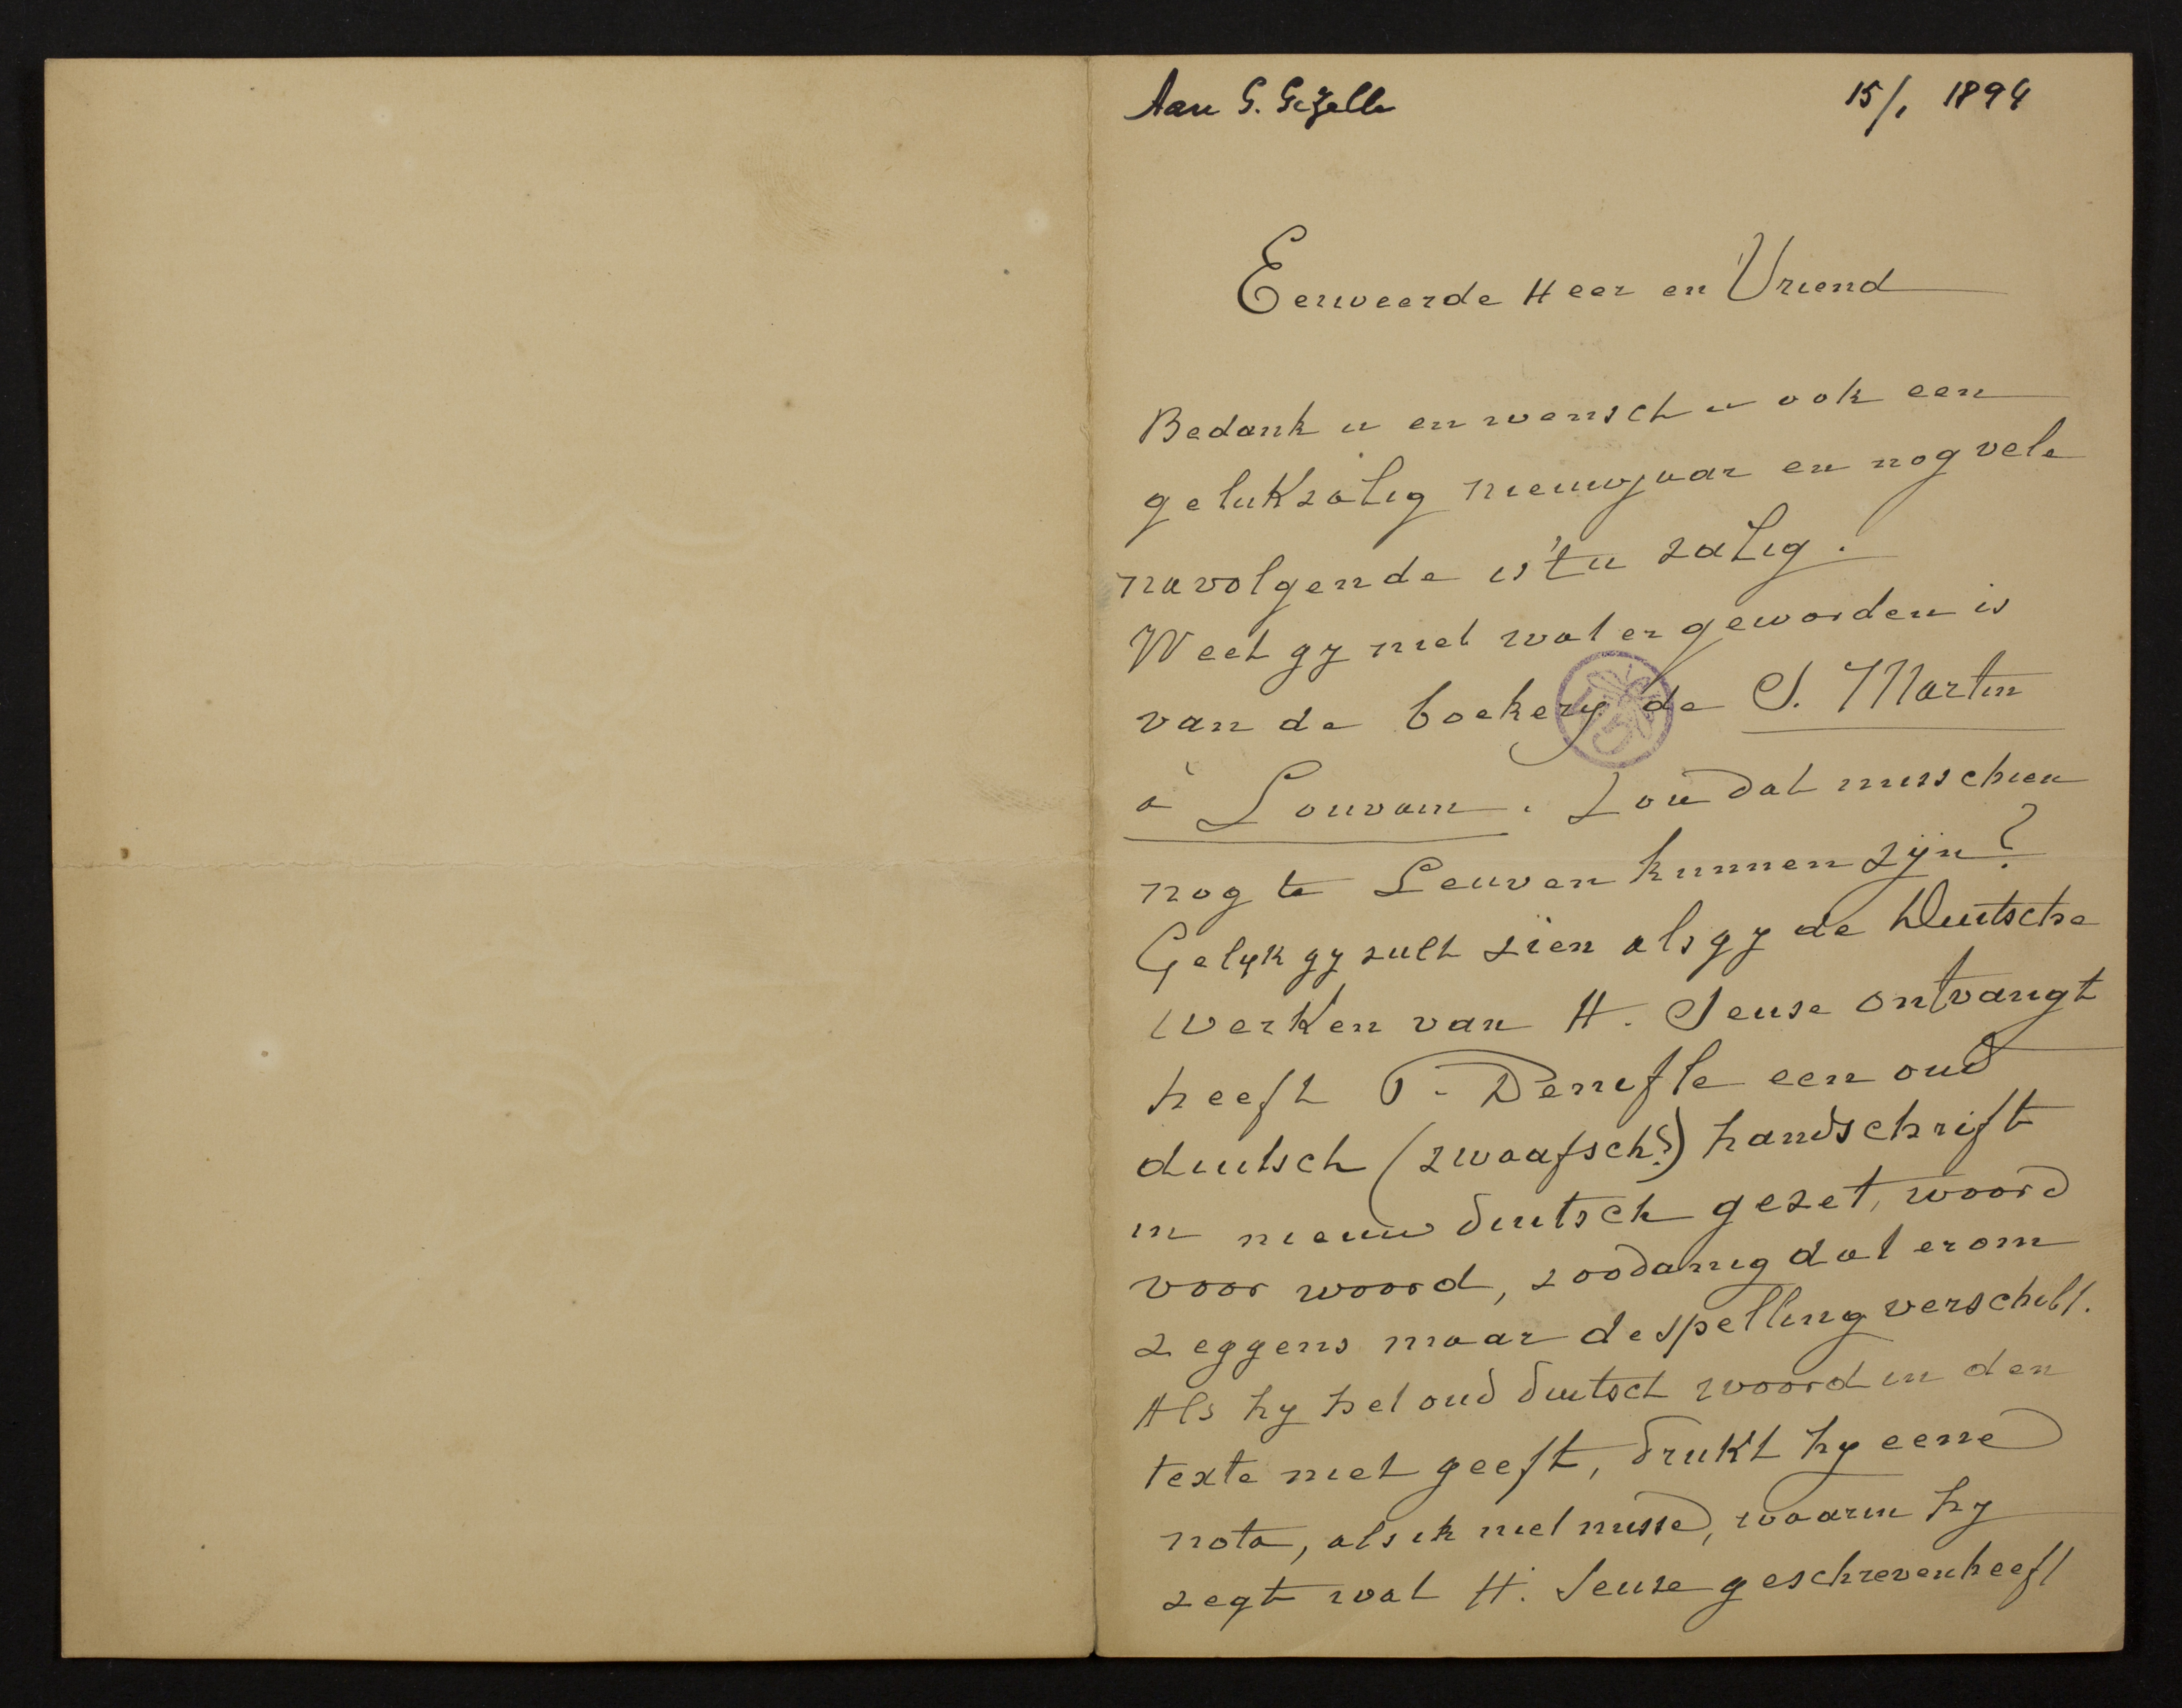 Aan G. Gezelle 15/1 1894
Eerweerde Heer en Vriend
Bedank u en wensch u ook een
gelukzalig nieuwjaar en nog vele
navolgende is 't u zalig.
Weet gy niet wat er geworden is
van de boekery de S. Martin
à Louvain. Zou dat misschien
nog te Leuven kunnen zyn?
Gelyk gy zult zien als gy de Duitsche
werken van H. Seuse ontvangt
heeft P. Denifle een oud
duitsch (zwaafsch?) handschrift
in nieuw duitsch gezet, woord
voor woord, zoodanig dat er om
zeggens maar de spelling verschilt.
Als hy het oud duitsch woord in den
texte niet geeft, drukt hy eene
nota, als ik niet misse, waarin hy
zegt wat H. Seuse geschreven heeft